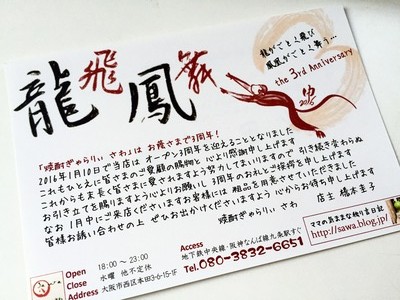 龍飛鳳舞
龍がごとく飛び
鳳凰がごとく舞う…
the 3rd Anniversary
2016
「焼酎ぎゃらりぃ さわ」は お蔭さまで3周年!
2016年1月10日で当店は オープン3周年を迎えることとなりました
これもひとえに皆さまのご愛顧の賜物と 心より感謝申し上げます
これからも末長く皆さまに愛されますよう努力してまいりますので 引き続き変わらぬ
お引き立てを賜りますよう心よりお願いし 3周年のお礼とご挨拶を申し上げます
なお 1月中にご来店くださいますお客様には 粗品を用意させていただきました
皆様お誘い合わせの上 ぜひお出かけくださいますよう 心からお待ち申し上げます
焼酎ぎゃらりぃ さわ 店主 橋本圭子
Open 18:00 〜 23:00
Close 水曜 他不定休
Address 大阪市西区本田3-6-15-1F
Access
地下鉄中央線・阪神なんば線九条駅すぐ
Tel.080-3832-6651
ママの気ままな独り言日記
http://sawa.blog.jp/